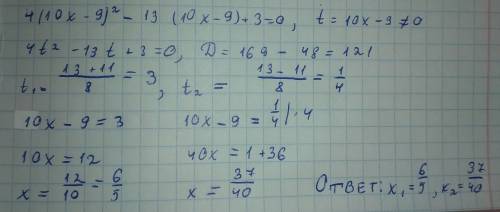 4(10x-9)² - 13 (10x-9)+3=0, t=10x-9≠0
4t²-13t+3=0, D=169-48=121
t₁= (13+11)/8 = 3, t₂ = (13-11)/8 = 1/4
10x-9=3 10x-9= 1/4 |·4
10x=12 40x=1+36
x = 12/10 = 6/5 x = 37/40 Ответ: x₁= 6/5, x₂= 37/40